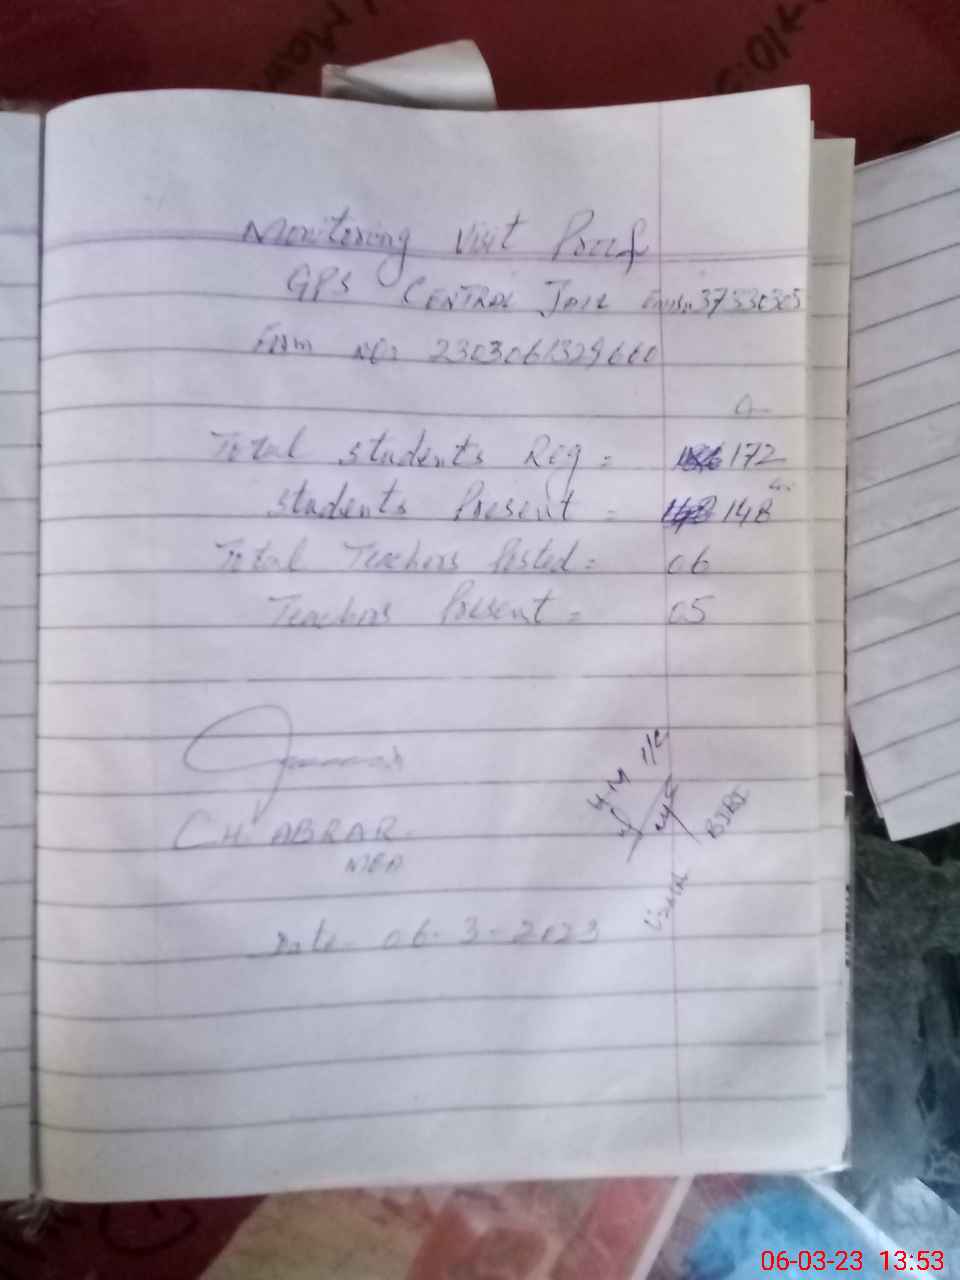 Monitoring Visit Proof
GPS CENTRAL JAIL Emis. 37330305
Form No: 2303061329660
Total students Reg = 172
students Present = 148
Total Teachers Posted = 06
Teachers Present = 05
H.M I/C
CH ABRAR
MEA
Date - 06-3-2023
06-03-23 13:53